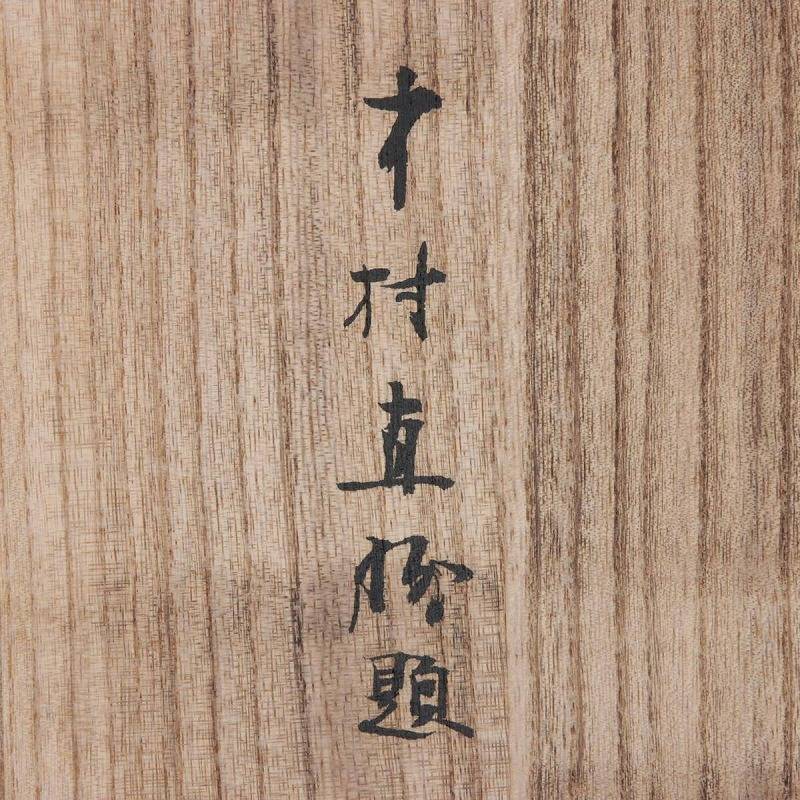 中村直勝題